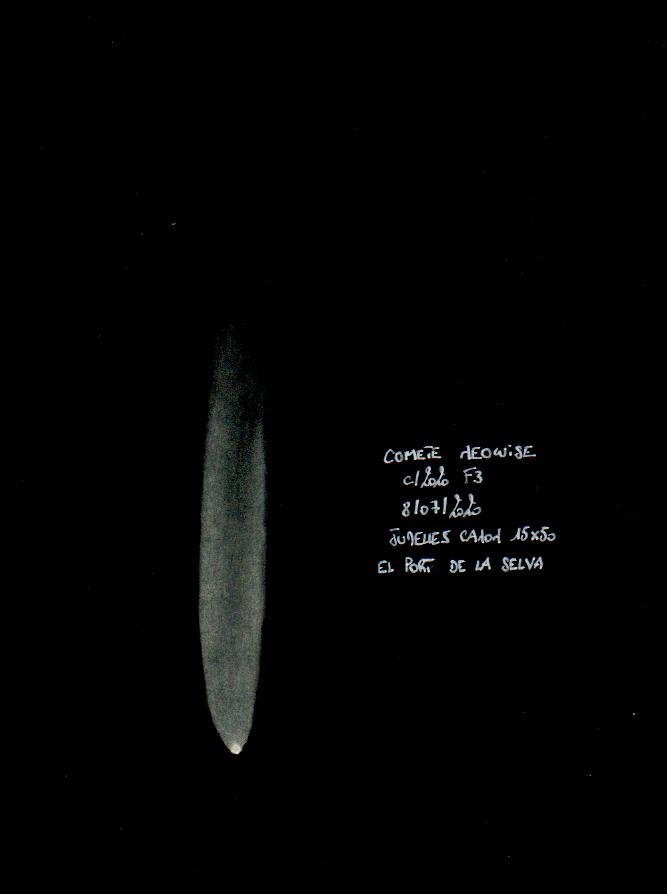 COMETE NEOWISE
C/2020 F3
8/07/2020
JUMELLES CANON 15x50
EL PORT DE LA SELVA